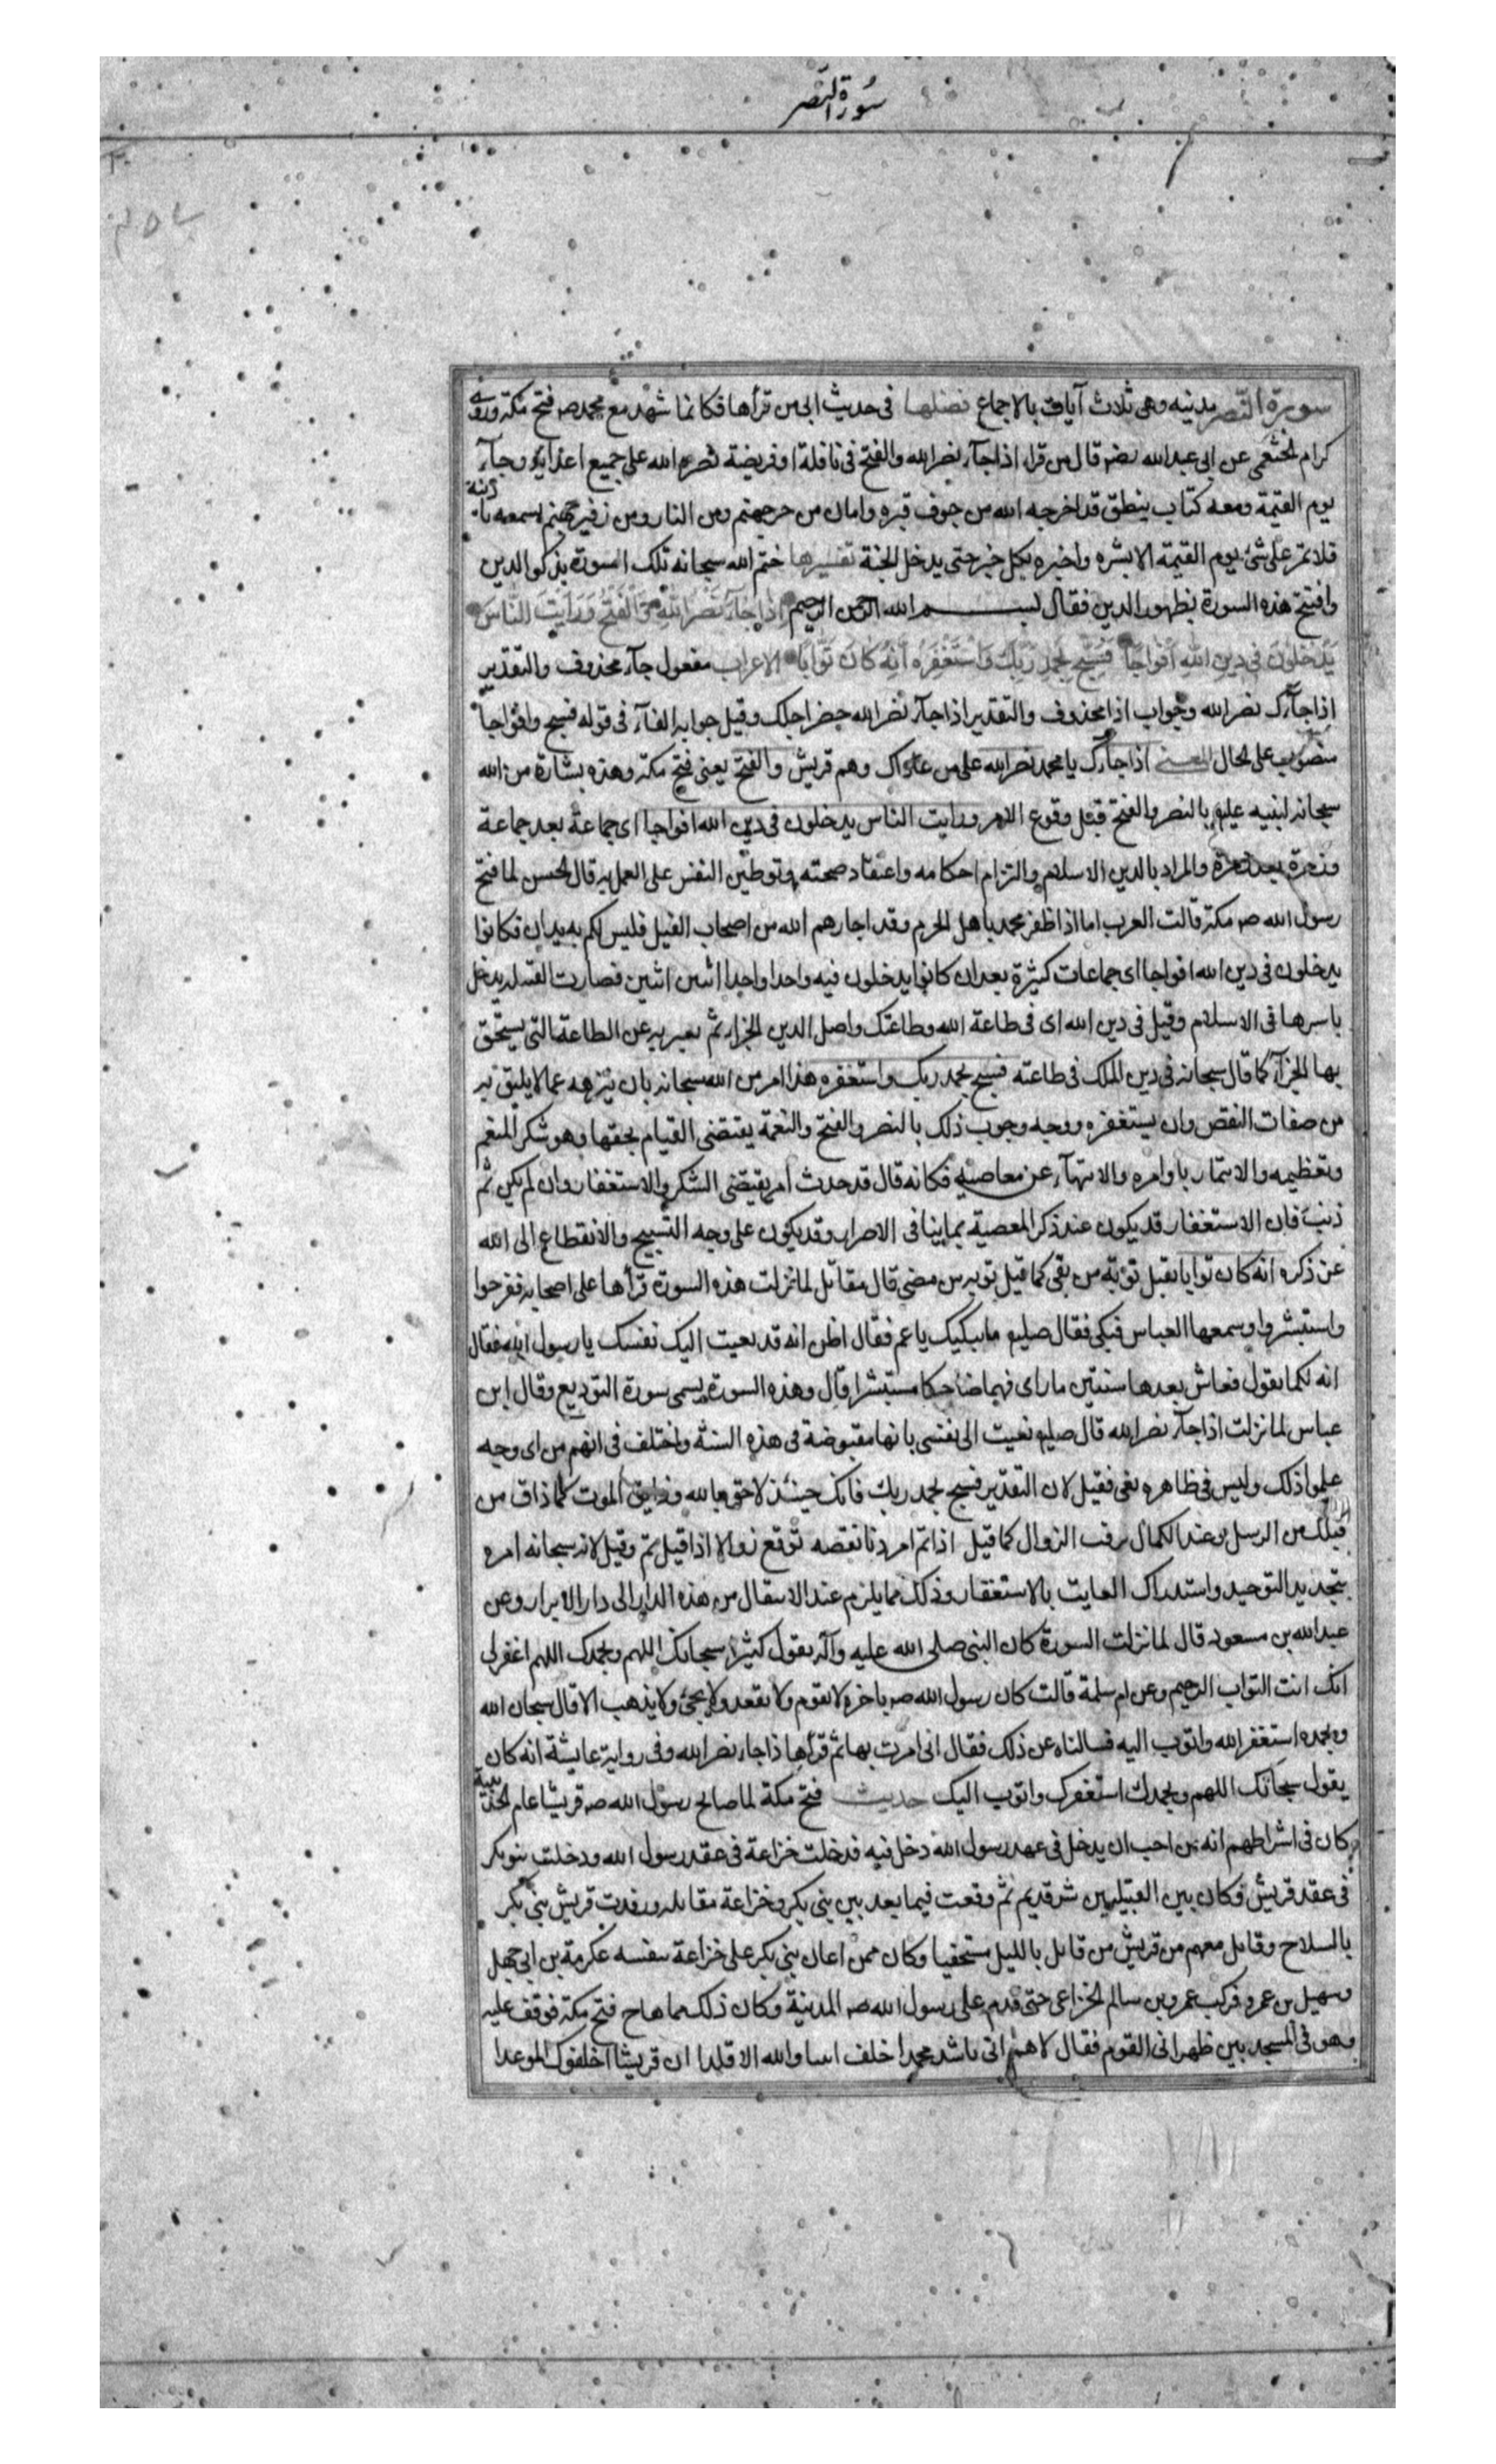 سورة النصر
سورة النصر مدنيه وهى ثلاث آيات بالاجماع فضلها فى حديث ابى من قرأها فكانما شهد مع محمد صه فتح مكة وروى
كرام الخثعمى عن ابى عبدالله قال من قرا اذا جآء نصر الله والفتح فى نافلة او فريضة نصره الله على جميع اعدائه وجآء
يوم القيمة ومعه كتاب ينطق قد اخرجه الله من جوف قبره وامان من حرجهنم ومن النار ومن زفير جهنم يسمعه باذنيه
فلا تمر على شئ يوم القيمة الا بشره واخبره بكل خير حتى يدخل الجنة تفسيرها ختم الله سبحانه تلك السورة بذكر الدين
وافتتح هذه السورة بظهور الدين فقال بسم الله الرحمن الرحيم اذا جآء نصر الله والفتح ورايت الناس
يدخلون فى دين الله افواجا فسبح بحمد ربك واستغفره انه كان توابا الاعراب مفعول جآء محذوف والتقدير
اذا جآءك نصر الله وجواب اذا محذوف والتقدير اذا جآء نصر الله حضر اجلك وقيل جوابه الفآء فى قوله فسبح وافواجا
منصوب على الحال المعنى اذا جآءك يا محمد نصر الله على من عاداك وهم قريش والفتح يعنى فتح مكة وهذه بشارة من الله
سبحانه لنبيه عليه بالنصر والفتح قبل وقوع الامر ورايت الناس يدخلون فى دين الله افواجا اى جماعة بعد جماعة
وزمرة بعد زمرة والمراد بالدين الاسلام والتزام احكامه واعتقاد صحته وتوطين النفس على العمل به قال الحسن لما فتح
رسول الله صه مكة قالت العرب اما اذا ظفر محمد باهل الحرم وقد اجارهم الله من اصحاب الفيل فليس لكم به يدان فكانوا
يدخلون فى دين الله افواجا اى جماعات كثيرة بعد ان كانوا يدخلون فيه واحدا واحدا اثنين اثنين فصارت القبيله يدخل
باسرها فى الاسلام وقيل فى دين الله اى فى طاعة الله وطاعتك واصل الدين الجزاء ثم يعبر به عن الطاعة التى يستحق
بها الجزآء كما قال سبحانه فى دين الملك فى طاعته فسبح بحمد ربك واستغفره هذا امر من الله سبحانه بان ينزهه عما لا يليق به
من صفات النقص وان يستغفره ووجه وجوب ذلك بالنصر والفتح والنعمة يقتضى القيام بحقها وهو شكر المنعم
وتعظيمه والايتمار باوامره والانتهآء عن معاصيه فكانه قال قد حدث امر يقتضى الشكر والاستغفار وان لم يكن ثم
ذنب فان الاستغفار قد يكون عند ذكر المعصية بما ينافى الاصرار وقد يكون على وجه التسبيح والانقطاع الى الله
عن ذكره انه كان توابا يقبل توبة من بقى كما قبل توبة من مضى قال مقاتل لما نزلت هذه السورة قرأها على اصحابه ففرحوا
واستبشروا وسمعها العباس فبكى فقال صليم ما يبكيك يا عم فقال اظن انه قد نعيت اليك نفسك يا رسول الله فقال
انه لكما تقول فعاش بعدها سنتين ما راى فيهما ضاحكا مستبشرا قال وهذه السورة يسمى سورة التوديع وقال ابن
عباس لما نزلت اذا جآء نصر الله قال صليم نعيت الى نفسى بانها مقبوضة فى هذه السنة واختلف فى انهم من اى وجه
علموا ذلك وليس فى ظاهره نعى فقيل لان التقدير فسبح بحمد ربك فانك حينئذ لاحق بالله وذايق الموت كما ذاق من
قبلك من الرسل وعند الكمال يرقب الزوال كما قيل اذا تم امر دنا نقصه توقع زوالا اذا قيل تم وقيل لانه سبحانه امره
بتجديد التوحيد واستدراك الفايت بالاستغفار وذلك مما يلزم عند الانتقال من هذه الدار الى دار الابرار وعن
عبدالله بن مسعود قال لما نزلت السورة كان النبى صلى الله عليه وآله يقول كثيرا سبحانك اللهم وبحمدك اللهم اغفر لى
انك انت التواب الرحيم وعن ام سلمة قالت كان رسول الله صه باخره لا يقوم ولا يقعد ولا يجئ ولا يذهب الا قال سبحان الله
وبحمده استغفر الله واتوب اليه فسالناه عن ذلك فقال انى امرت بها ثم قرأها اذا جاء نصر الله وفى رواية عايشة انه كان
يقول سبحانك اللهم وبحمدك استغفرك واتوب اليك حديث فتح مكة لما صالح رسول الله صه قريشا عام الحديبية
كان فى اشراطهم انه من احب ان يدخل فى عهد رسول الله دخل فيه فدخلت خزاعة فى عقد رسول الله ودخلت بنو بكر
فى عقد قريش وكان بين القبيلتين شر قديم ثم وقعت فيما بعد بين بنى بكر وخزاعة مقاتله ورفدت قريش بنى بكر
بالسلاح وقاتل معهم من قريش من قاتل بالليل مستخفيا وكان ممن اعان بنى بكر على خزاعة بنفسه عكرمة بن ابى جهل
وسهيل بن عمرو فركب عمرو بن سالم الخزاعى حتى قدم على رسول الله صه المدينة وكان ذلك مما هاج فتح مكة فوقف عليه
وهو فى المسجد بين ظهرانى القوم فقال لاهم انى ناشد محمدا حلف ابينا وابيه الاتلدا ان قريشا اخلفوك الموعدا